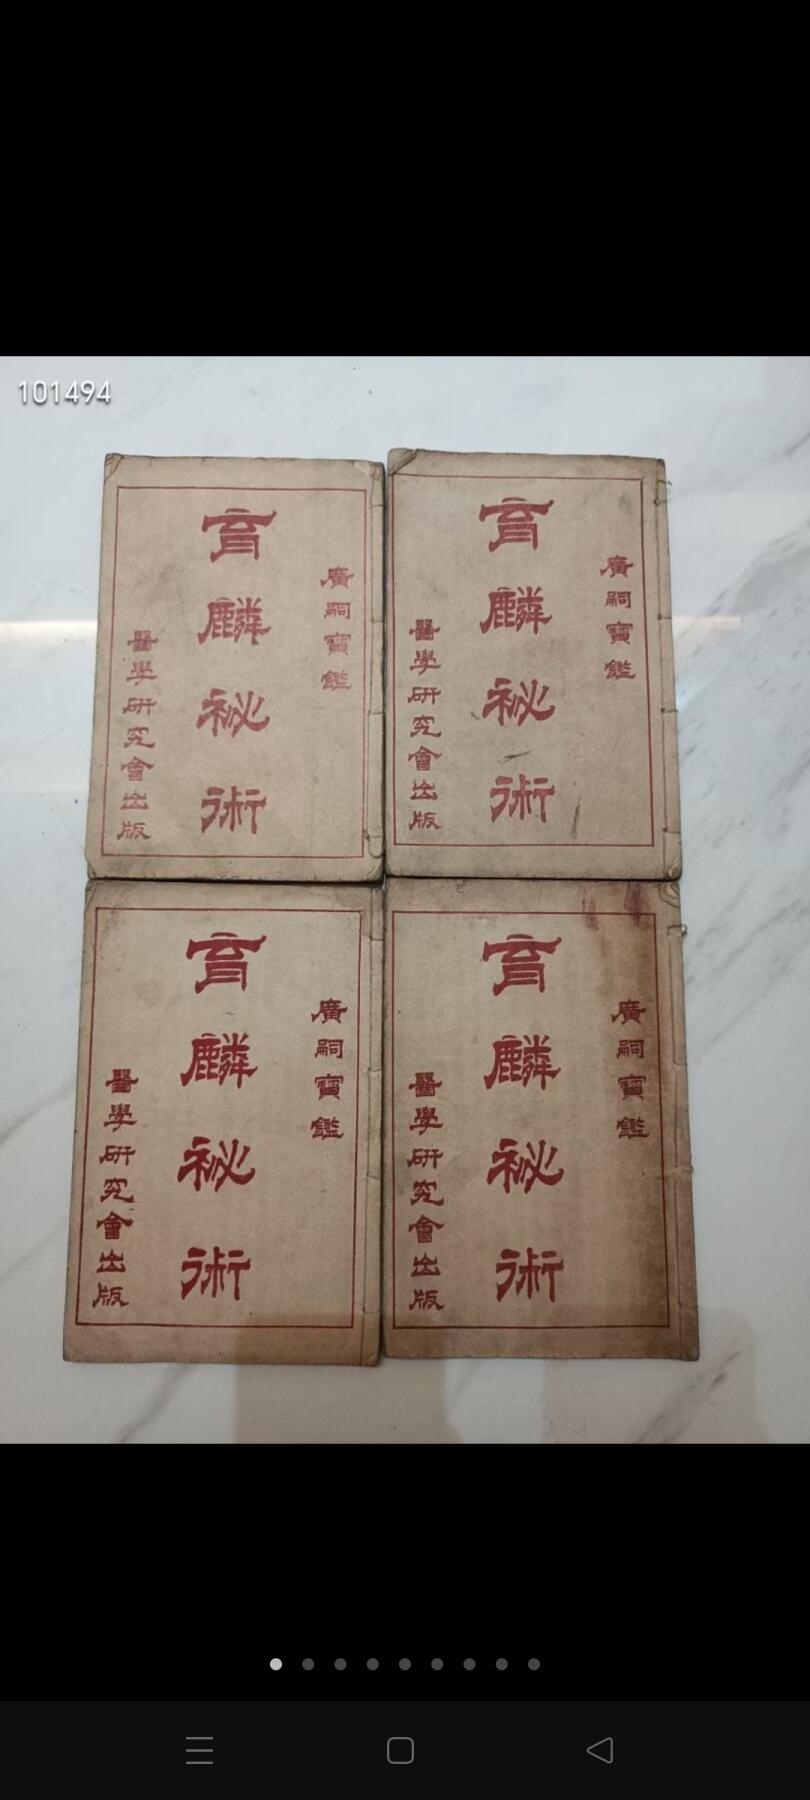 101494
廣嗣寶鑑
育麟祕術
醫學研究會出版
廣嗣寶鑑
育麟祕術
醫學研究會出版
廣嗣寶鑑
育麟祕術
醫學研究會出版
廣嗣寶鑑
育麟祕術
醫學研究會出版